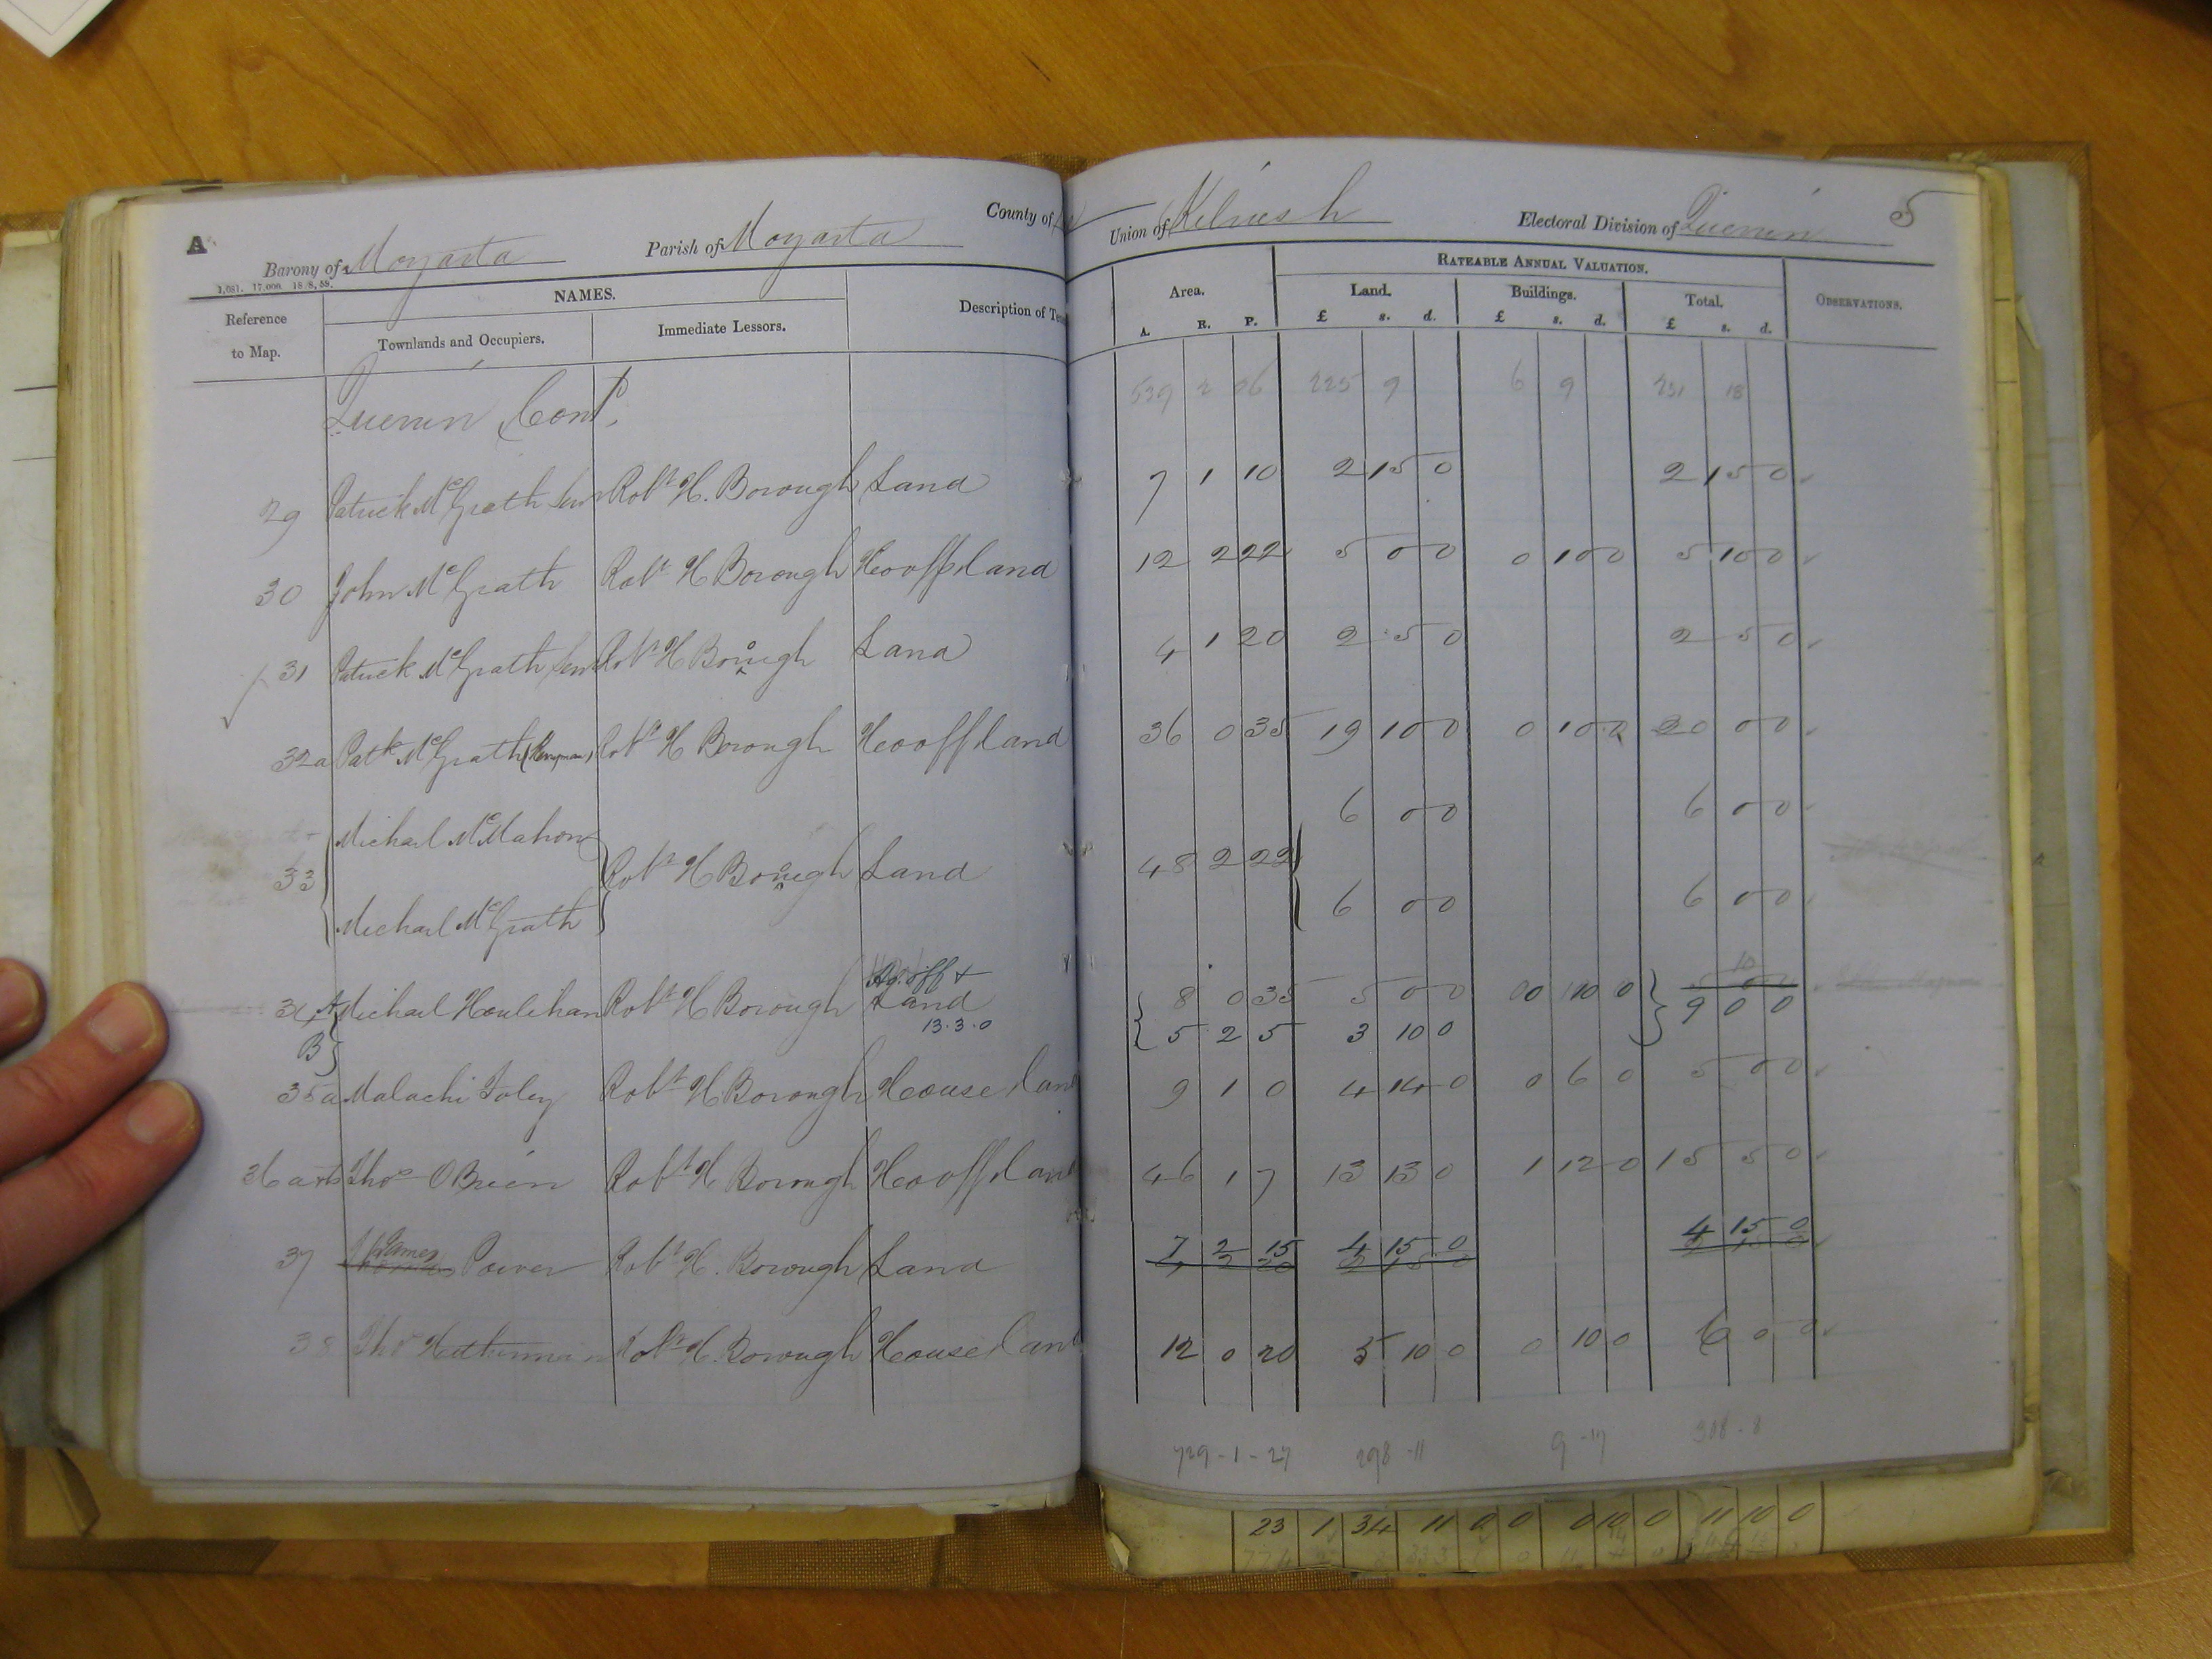 A
Barony of Moyarta Parish of Moyarta County of
Union of Kilrush Electoral Division of Querrin 5
1,081. 17,000. 18/8, 58.
Reference to Map. NAMES. Townlands and Occupiers. Immediate Lessors. Description of Ten
Area. A. R. P. RATEABLE ANNUAL VALUATION. Land. £ s. d. Buildings. £ s. d. Total. £ s. d. OBSERVATIONS.
539 2 26 225 9 6 9 231 18
Querrin Contd.
29 Patrick McGrath Senr Robt H. Borough Land 7 1 10 2 15 0 2 15 0
30 John McGrath Robt H Borough Ho off & land 12 2 22 5 0 0 0 10 0 5 10 0
31 Patrick McGrath Senr Robt H Borough Land 4 1 20 2 5 0 2 5 0
32a Patk McGrath (Kerryman) Robt H Borough Ho off land 36 0 35 19 10 0 0 10 0 20 0 0
Michael McMahon 6 0 0 6 0 0
33 Robt H Borough Land 48 2 22
Michael McGrath 6 0 0 6 0 0
Ho. off &
34 A Michael Houlihan Robt H Borough Land 8 0 35 5 0 0 0 10 0 5 10 0
B 13.3.0 5 2 5 3 10 0 9 0 0
35a Malachi Foley Robt H Borough House land 9 1 0 4 14 0 0 6 0 5 0 0
36a & b Thos OBrien Robt H Borough Ho off land 46 1 7 13 13 0 1 12 0 15 5 0
James 7 2 15 4 15 0 4 15 0
37 Thomas Power Robt H. Borough Land
38 Thos Hetherman Robt H. Borough House land 12 0 20 5 10 0 0 10 0 6 0 0
729-1-27 298-11 9-17 308-8
23 1 34 11 0 0 0 10 0 11 10 0